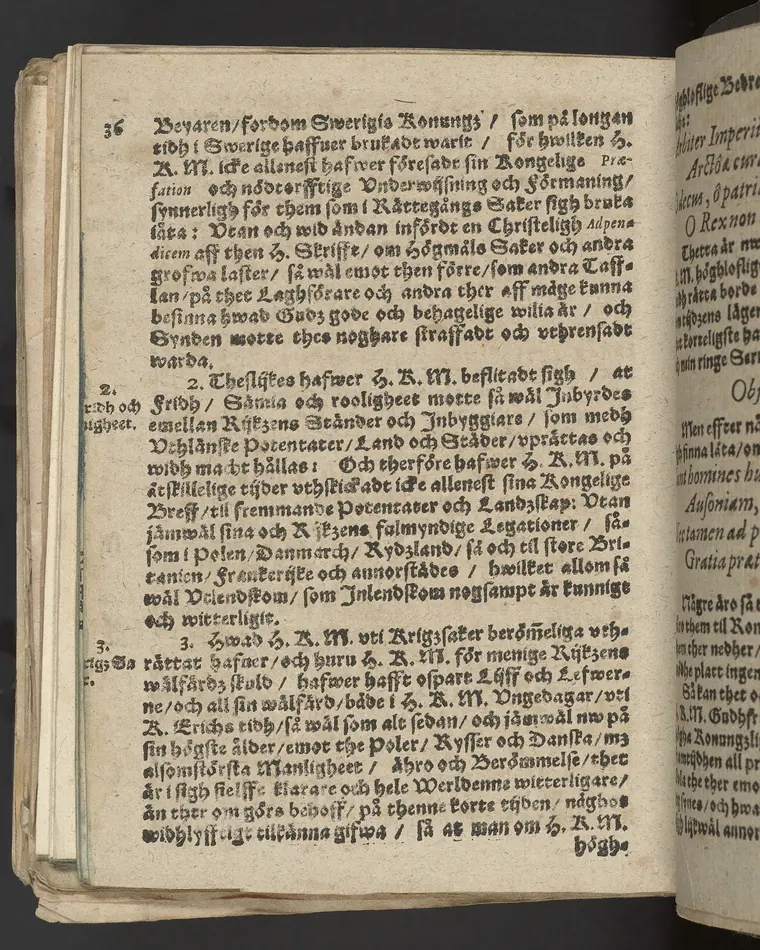 36
Beyaren/fordom Swerigis Konungz / som på longan
tidh i Swerige haffuer brukadt warit / för hwilken H.
K. M. icke allenest hafwer föresadt sin Kongelige Præ-
fation och nödtorfftige Vnderwijsning och Förmaning/
synnerligh för them som i Rättegångs Saker sigh bruka
låta: Vtan och widh ändan infördt en Christeligh Adpen-
dicem aff then H. Skrifft/ om Högmåls Saker och andra
grofwa laster/ så wäl emot then förre/som andra Taff-
lan/på thet Laghförare och andra ther aff måge kunna
besinna hwad Gudz gode och behagelige wilia är / och
Synden motte thes noghare straffadt och vthrensadt
warda.
2.
ridh och
nigheet.
2. Theslijkes hafwer H. K. M. beflitadt sigh / at
Fridh / Sämia och rooligheet motte så wäl Inbyrdes
emellan Rijkzens Ständer och Inbyggiare / som medh
Vthlänske Potentater/Land och Städer/vprättas och
widh macht hållas: Och therföre hafwer H. K. M. på
åtskillelige tijder vthskickadt icke allenest sina Kongelige
Breff/til fremmande Potentater och Landzskap: Vtan
jämwäl sina och Rijkzens fulmyndige Legationer / så-
som i Polen/Danmarch/ Rydzland/ så och til store Bri-
tanien/Franckerijke och annorstädes / hwilket allom så
wäl Vtlendskom/ som Inlendskom nogsampt är kunnigt
och witterligit.
3.
rigz Sa
r.
3. Hwad H. K. M. vti Krigzsaker berömeliga vth-
rättat hafuer/och huru H. K. M. för menige Rijkzens
wälfärdz skuld / hafwer hafft ospart Lijff och Lefwer-
ne/och all sin wälfärd/både i H. K. M. Vngedagar/vti
K. Erichs tidh/så wäl som alt sedan/ och jämwäl nw på
sin högste ålder/emot the Poler/ Rysser och Danska/mz
alsomstörsta Manligheet / ähro och Berömmelse/thet
är i sigh sielffe klarare och hele Werldenne witterligare/
än ther om görs behoff/ på thenne korte tijden/ någhos
widhlyfftigt tilkänna gifwa / så at man om H. K. M.
högh-